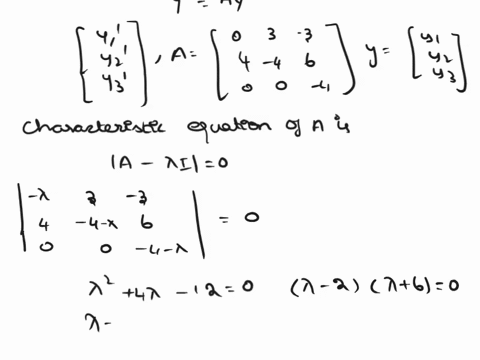 y' = Ay
[y1' y2' y3'], A = [0 3 -3; 4 -4 6; 0 0 -4] y = [y1 y2 y3]
characteristic equation of A is
|A - λI| = 0
|-λ 3 -3; 4 -4-λ 6; 0 0 -4-λ| = 0
λ² + 4λ - 12 = 0 (λ-2)(λ+6) = 0
λ -